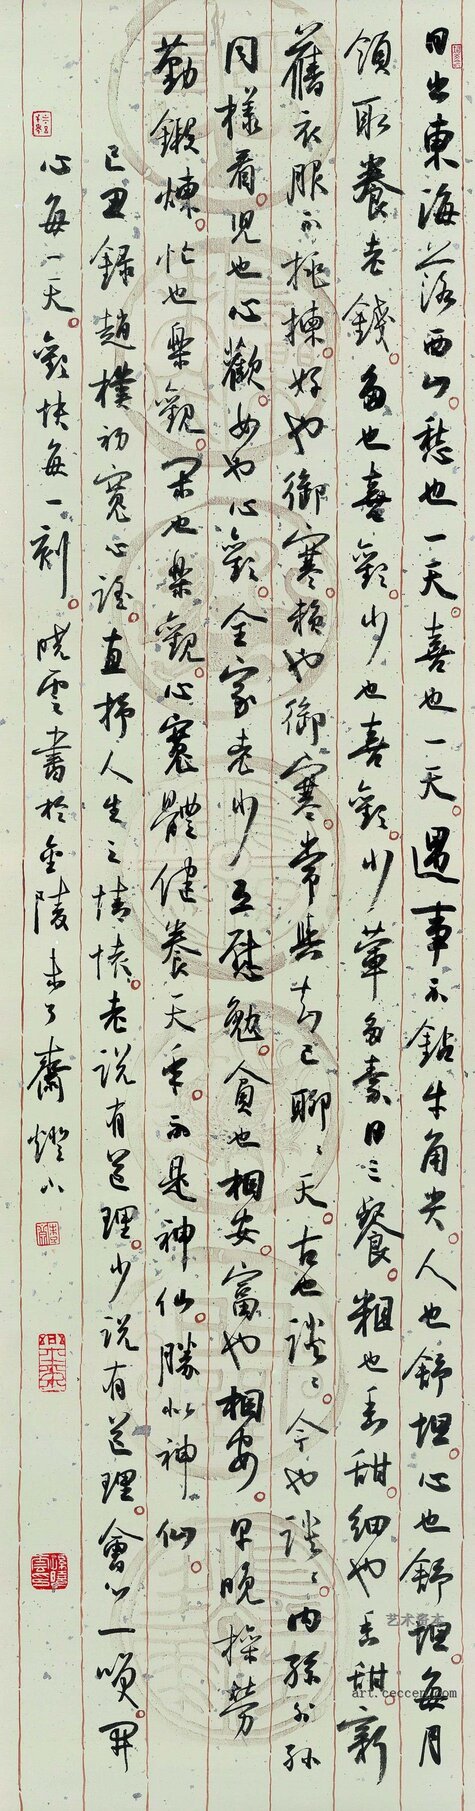 日出東海落西山愁也一天喜也一天遇事不鉆牛角尖人也舒坦心也舒坦每月
領取養老錢多也喜歡少也喜歡少葷多素日三餐粗也香甜細也香甜新
舊衣服不挑揀好也御寒賴也御寒常與知己聊〻天古也談〻今也談〻內孫外孫
同樣看兒也心歡女也心歡全家老少互慰勉貧也相安富也相安早晚操勞
勤鍛煉忙也樂觀閑也樂觀心寬體健養天年不是神仙勝似神仙
己丑錄趙樸初寬心謠直抒人生之情懷老說有道理少說有道理會心一笑開
心每一天歡快每一刻曉雲書於金陵未了齋燈下
艺术资本
art.ceccen.com